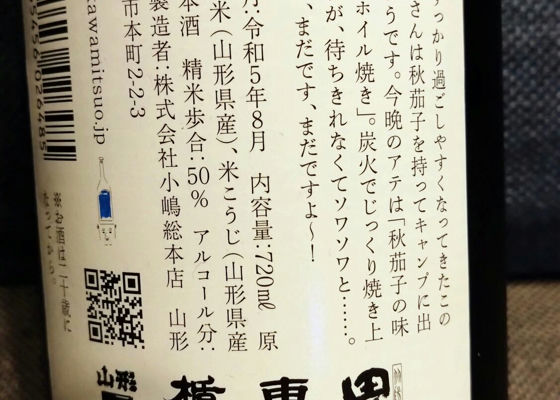 すっかり過ごしやすくなってきたこの
さんは秋茄子を持ってキャンプに出
うです。今晩のアテは「秋茄子の味
ホイル焼き」。炭火でじっくり焼き上
が、待ちきれなくてソワソワと……。
、まだです、まだですよ〜!
月:令和5年8月 内容量:720ml 原
米(山形県産)、米こうじ(山形県産
本酒 精米歩合:50% アルコール分:
製造者:株式会社小嶋総本店 山形
市本町2-2-3
awamitsuo.jp
545602648
※お酒は二十歳に
なってから。
山形